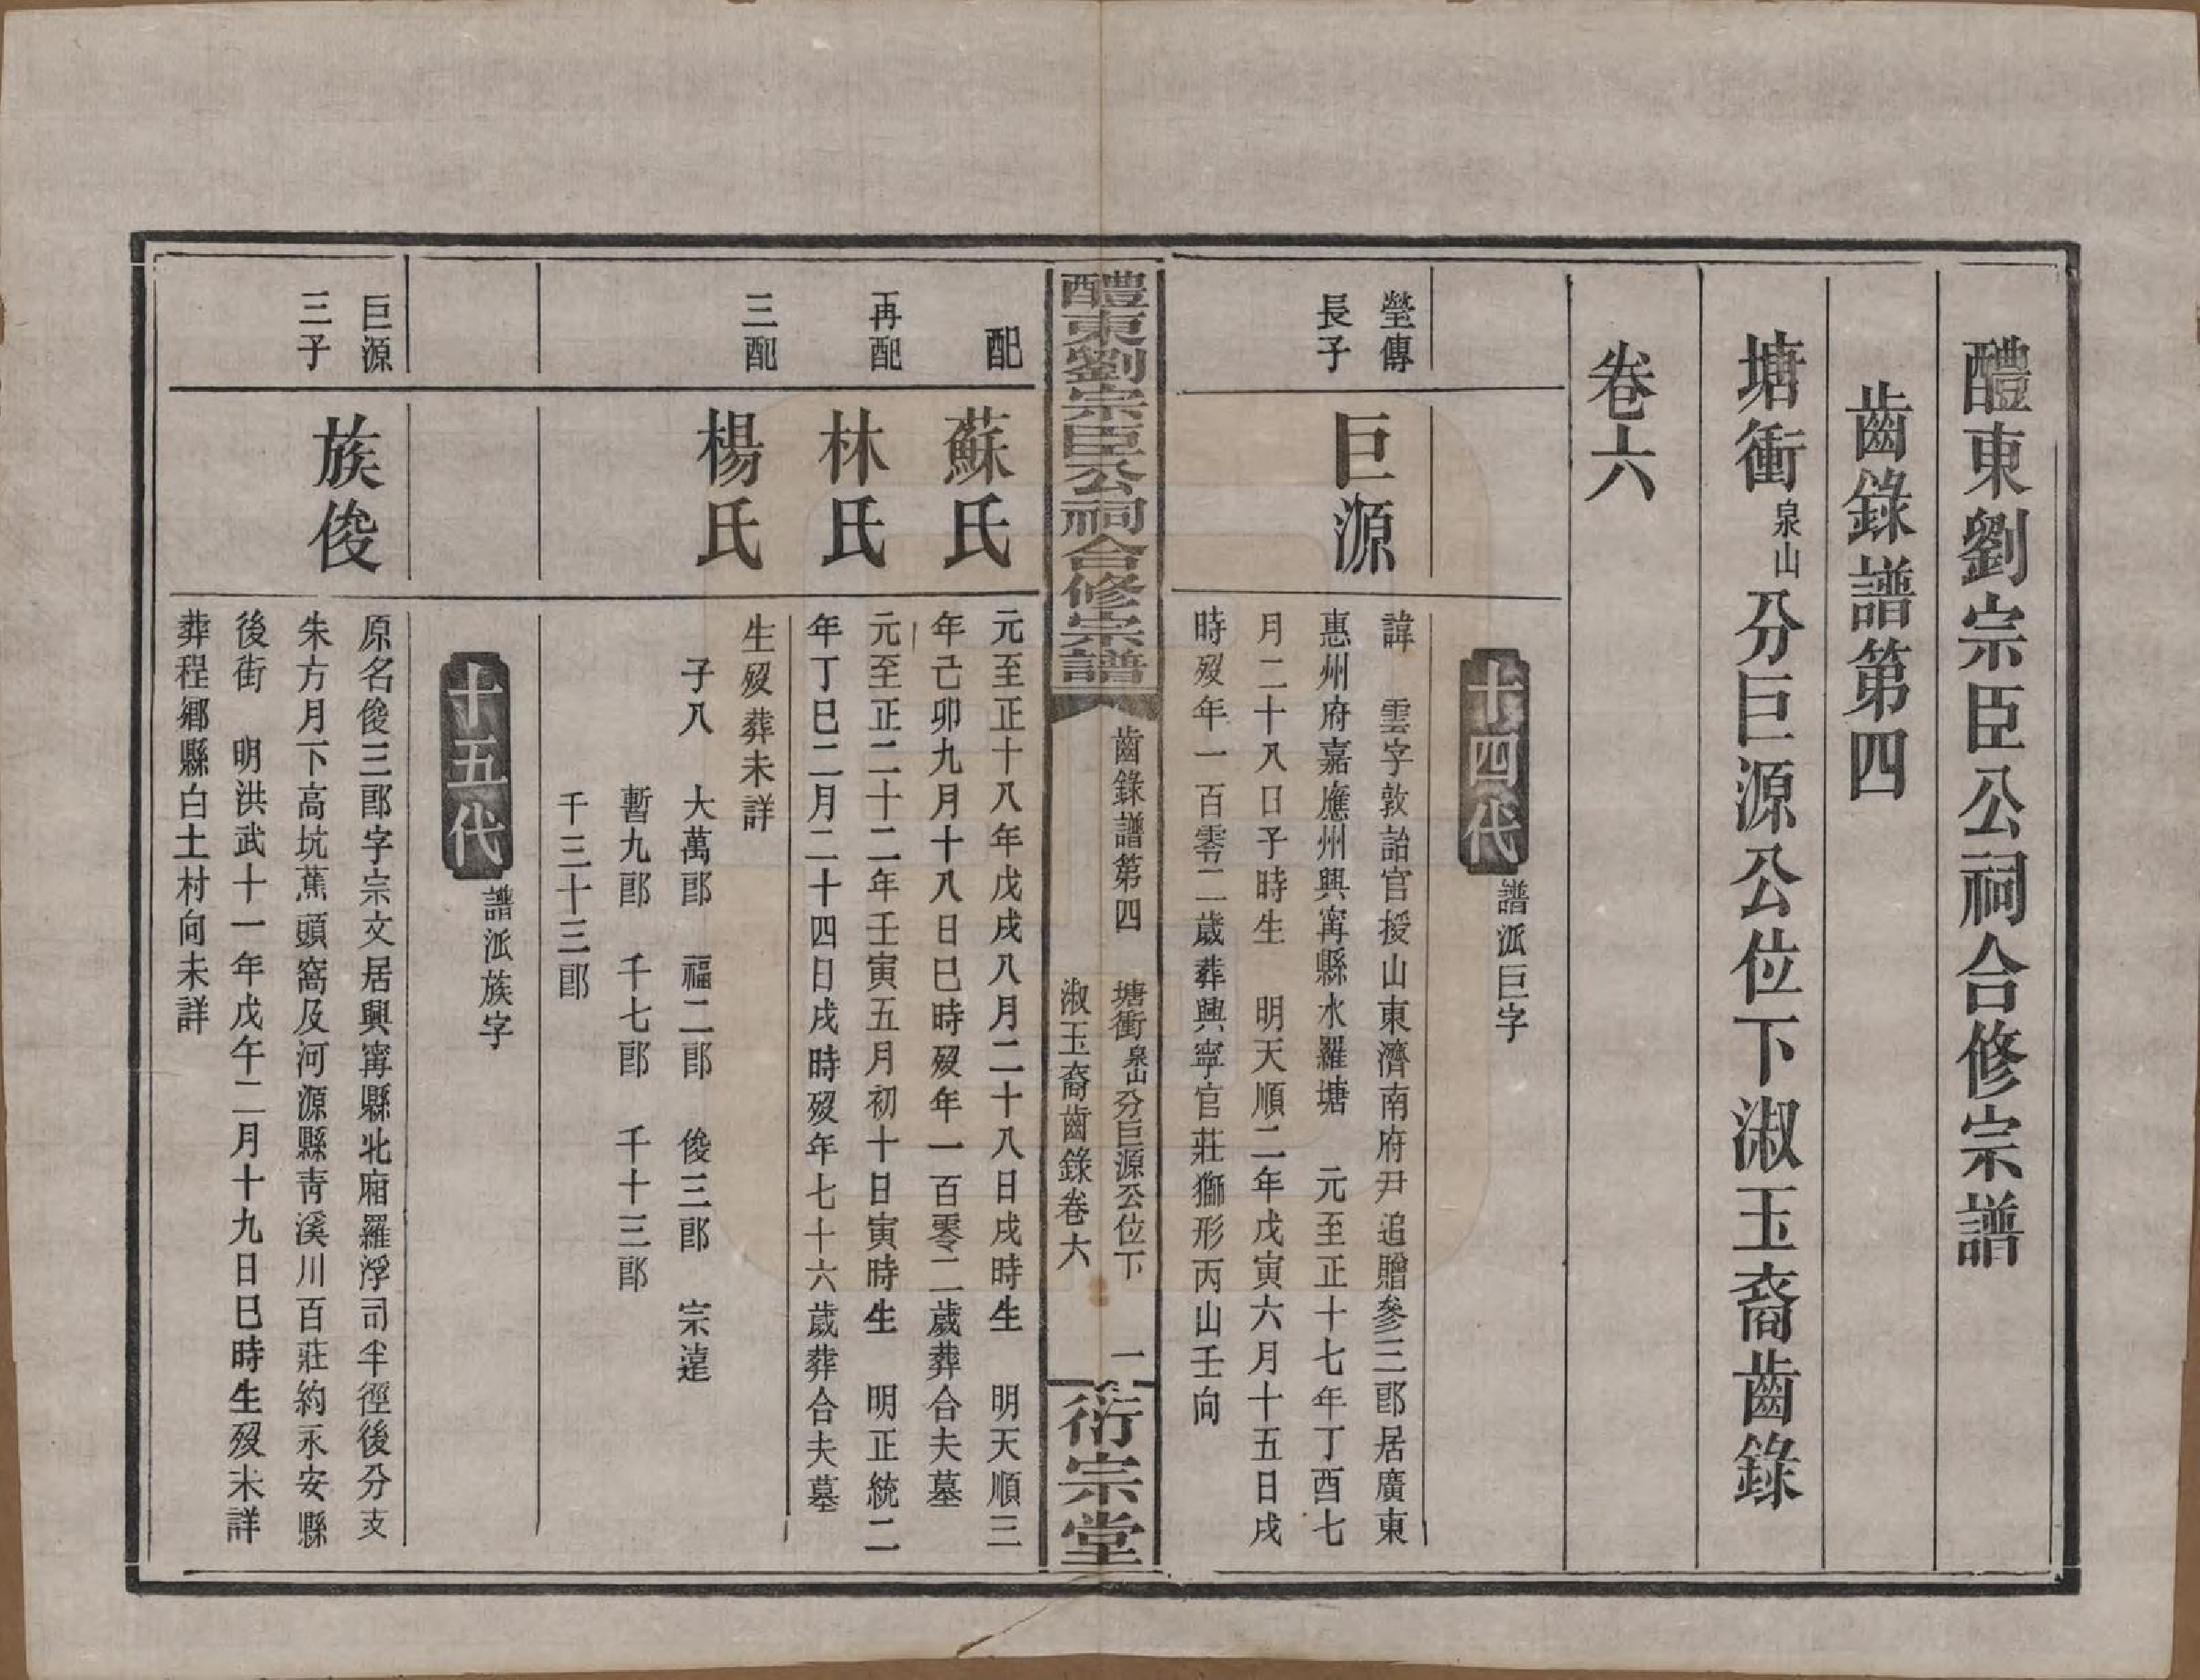 醴東劉宗臣公祠合修宗譜
齒錄譜第四
塘衝泉山分巨源公位下淑玉裔齒錄
卷六
十四代
譜派巨字
瑩傳
長子
巨源
諱　雲字敦詒官授山東濟南府尹追贈參三郎居廣東
惠州府嘉應州興甯縣水羅塘　元至正十七年丁酉七
月二十八日子時生　明天順二年戊寅六月十五日戌
時歿年一百零二歲葬興寧官莊獅形丙山壬向
醴東劉宗臣公祠合修宗譜
齒錄譜第四　塘衝泉山分巨源公位下　一
淑玉裔齒錄卷六
衍宗堂
配
蘇氏
元至正十八年戊戌八月二十八日戌時生　明天順三
年己卯九月十八日巳時歿年一百零二歲葬合夫墓
再配
林氏
元至正二十二年壬寅五月初十日寅時生　明正統二
年丁巳二月二十四日戌時歿年七十六歲葬合夫墓
三配
楊氏
生歿葬未詳
子八　大萬郎　福二郎　俊三郎　宗遠
暫九郎　千七郎　千十三郎
千三十三郎
十五代
譜派族字
巨源
三子
族俊
原名俊三郎字宗文居興甯縣北廂羅浮司半徑後分支
朱方月下高坑蕉頭窩及河源縣青溪川百莊約永安縣
後街　明洪武十一年戊午二月十九日巳時生歿未詳
葬程鄉縣白土村向未詳